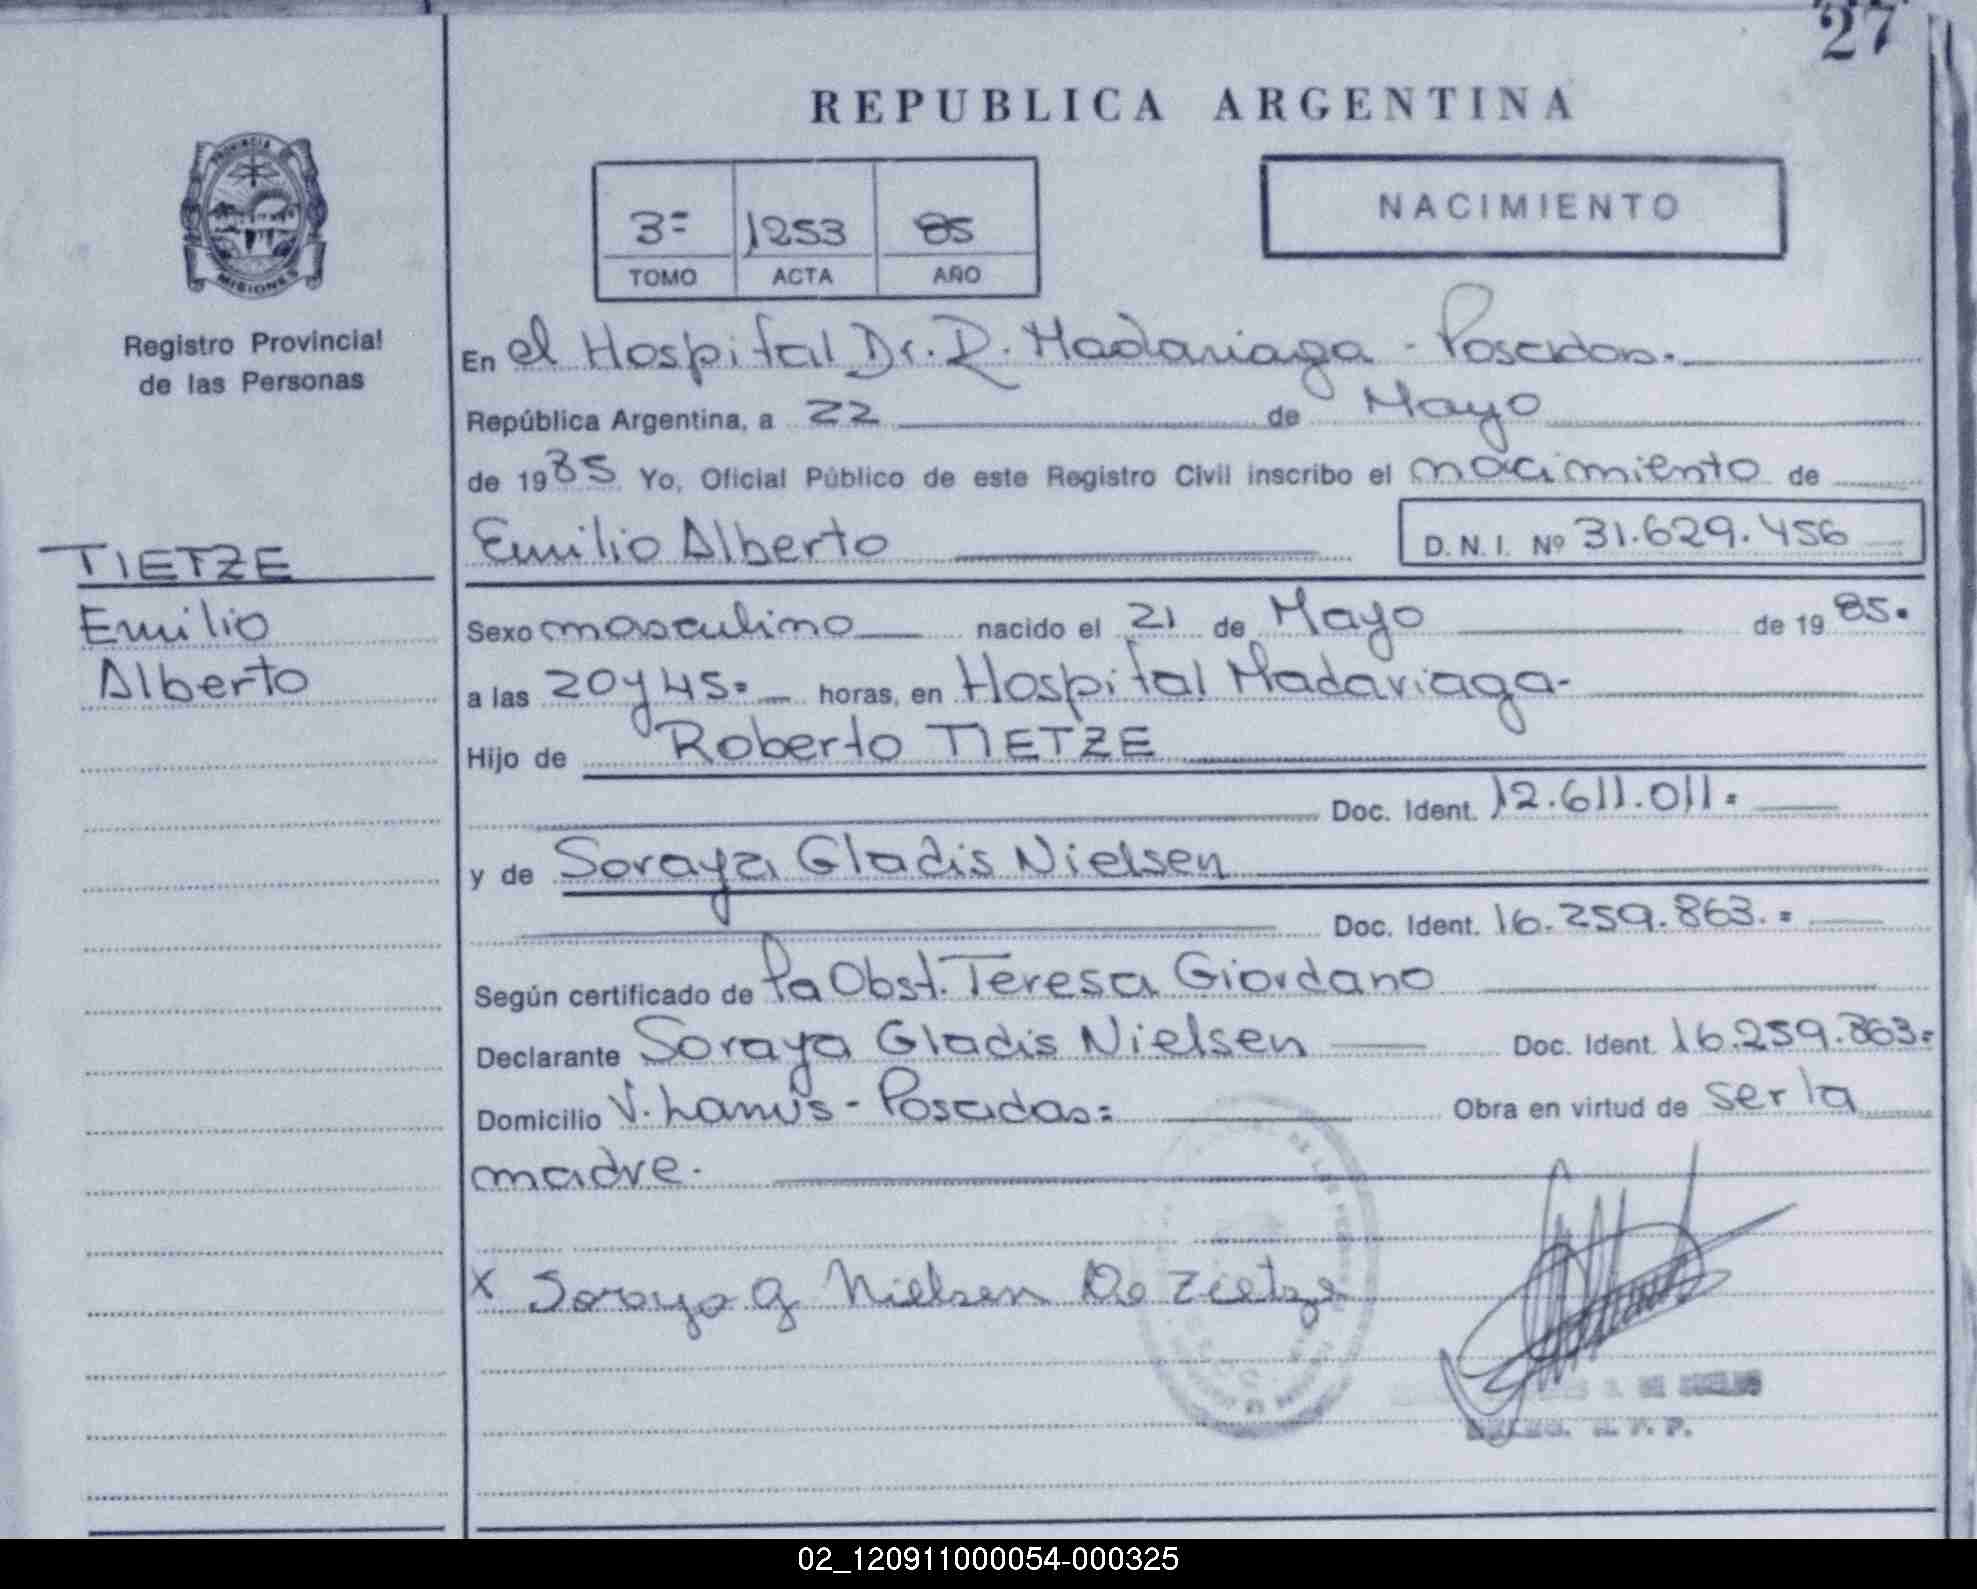 27
REPUBLICA ARGENTINA
PROVINCIA DE
MISIONES
Registro Provincial
de las Personas
3= 1253 85
TOMO ACTA AÑO
NACIMIENTO
En el Hospital Dr. R. Madariaga - Posadas.
República Argentina, a 22 de Mayo
de 1985 Yo, Oficial Público de este Registro Civil inscribo el nacimiento de
Emilio Alberto D.N.I. Nº 31.629.456
TIETZE
Emilio
Alberto
Sexo masculino nacido el 21 de Mayo de 1985.
a las 20 y 45= horas, en Hospital Madariaga-
Hijo de Roberto TIETZE
Doc. Ident. 12.611.011=
y de Soraya Gladis Nielsen
Doc. Ident. 16.259.863.=
Según certificado de la Obst. Teresa Giordano
Declarante Soraya Gladis Nielsen Doc. Ident. 16.259.863=
Domicilio V. Lanus - Posadas= Obra en virtud de ser la
madre.
X Soraya G Nielsen De Tietze
02_120911000054-000325